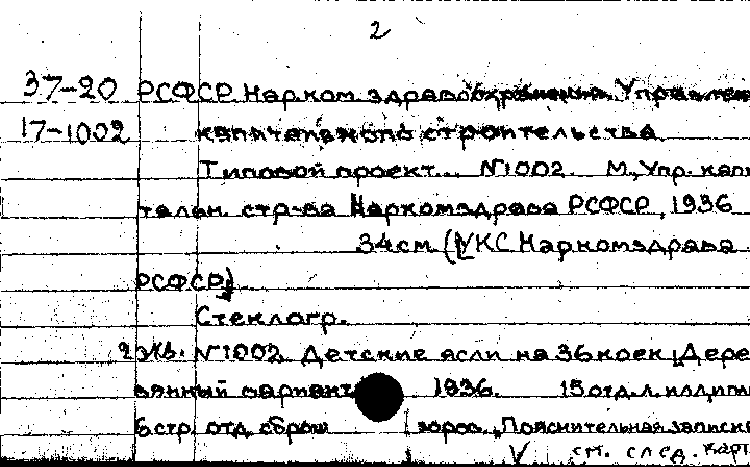 2
37-20 РСФСР. Нарком здравоохранения. Управлен
17-1002 капитального строительства
Типовой проект... N1002. М., Упр. капи
тальн. стр-ва Наркомздрава РСФСР, 1936
34см (УКС Наркомздрава
РСФСР)
Стеклогр.
2 экз. N1002 Детские ясли на 36 коек. Дере
вянный вариант 1936. 15 отд. л. илл,
6 стр. отд. сброш Пояснительная записка
V см. след. карт